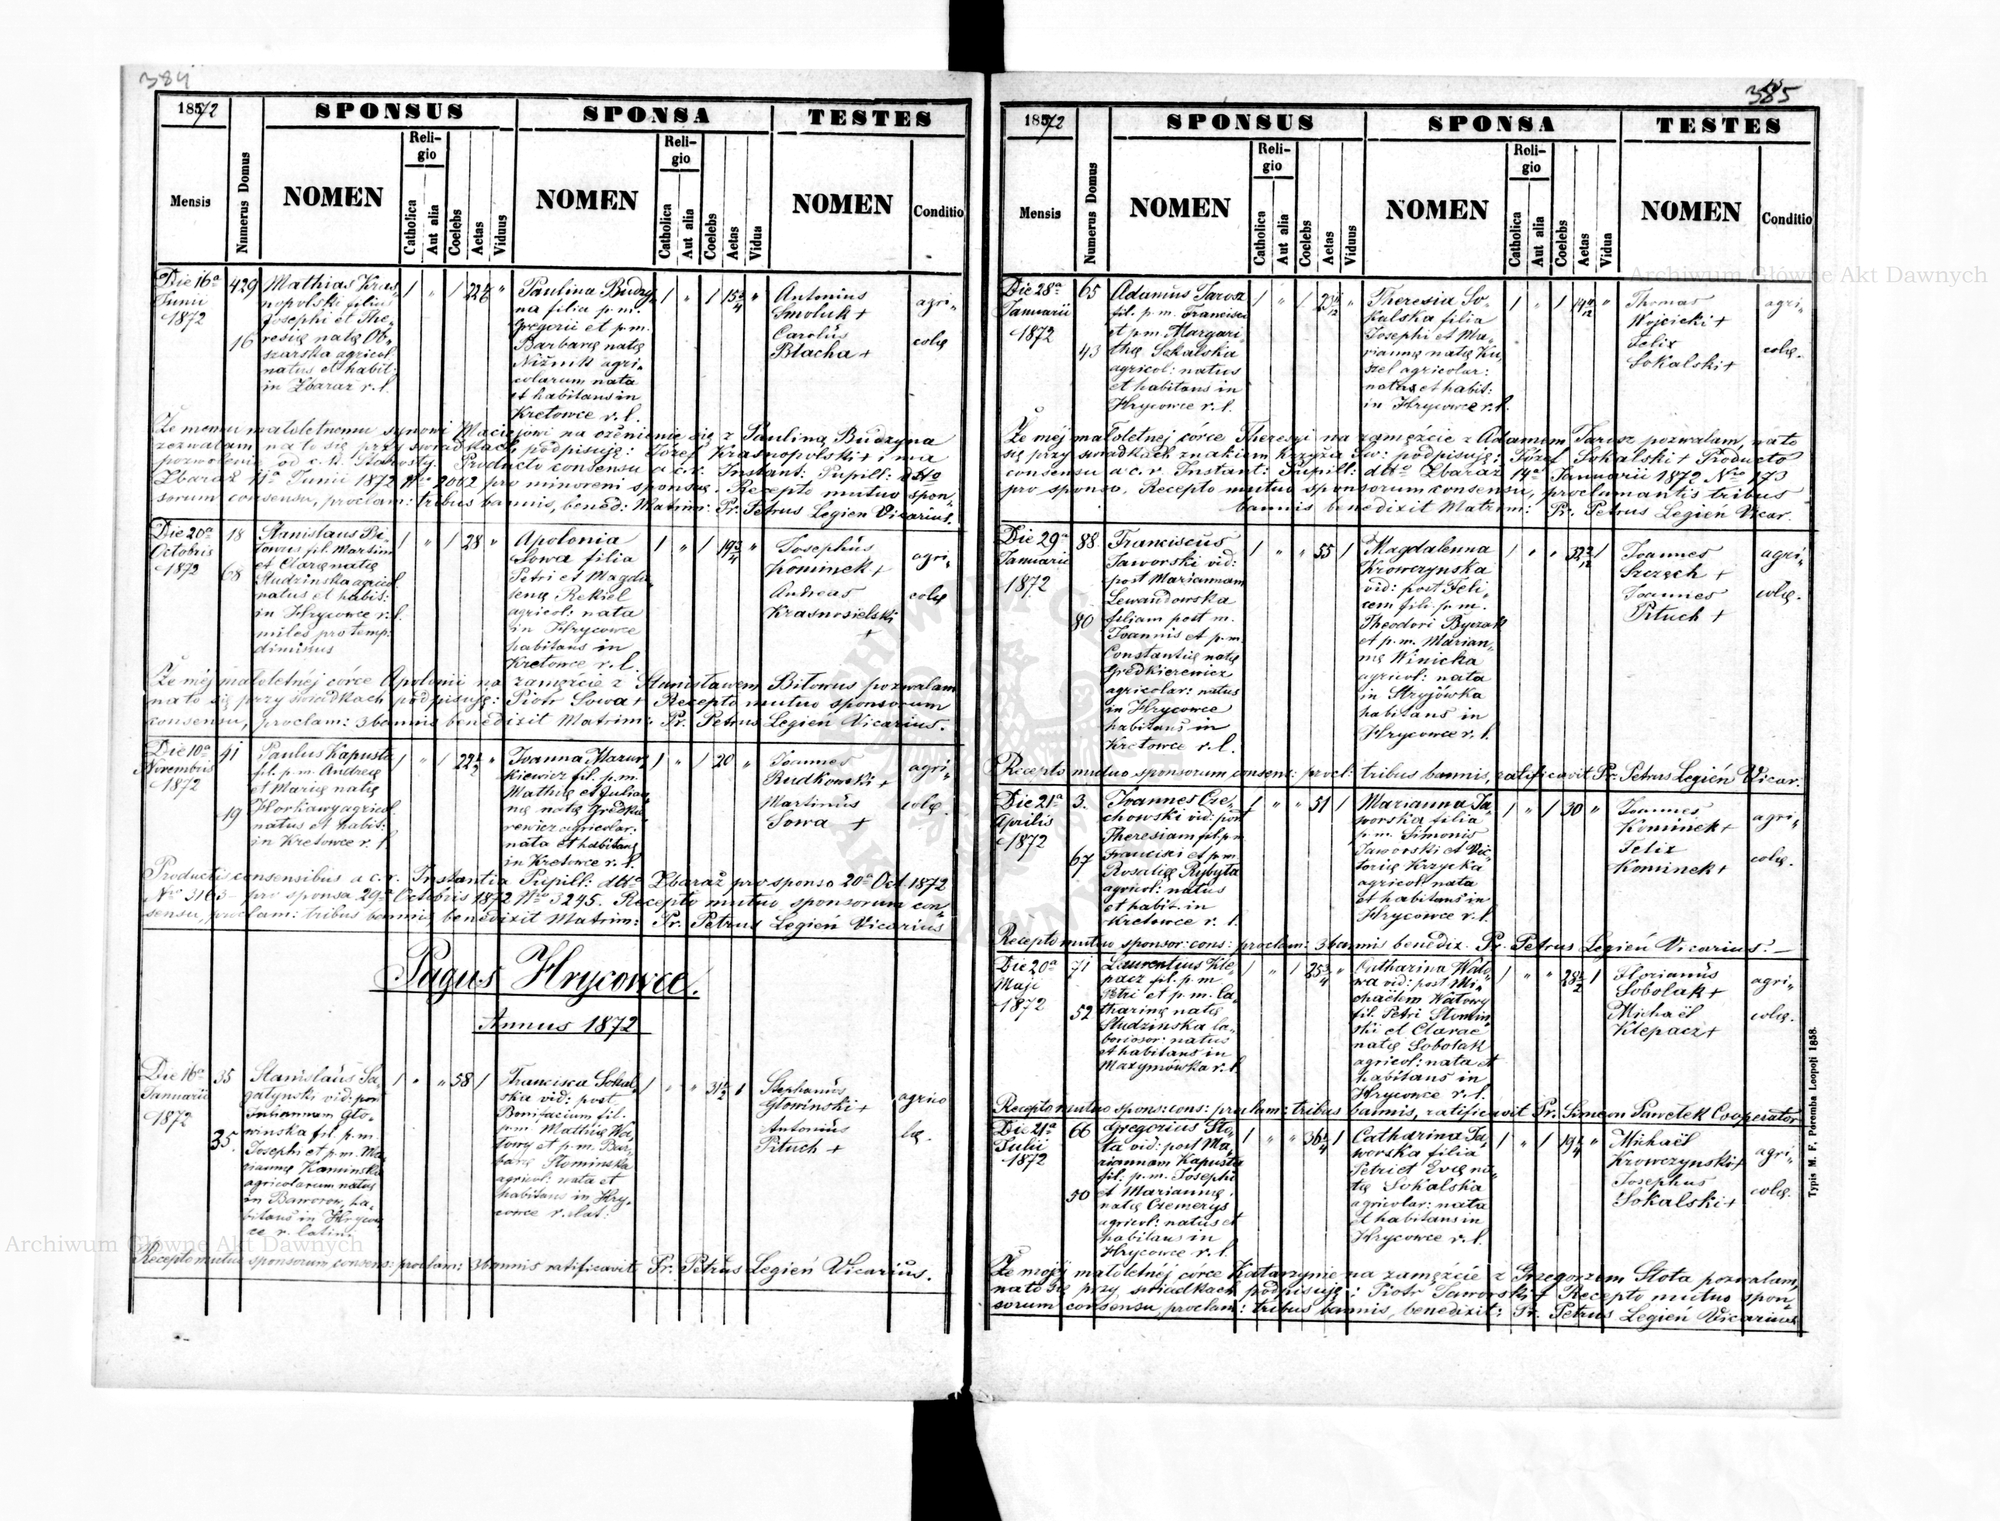 384
1872
SPONSUS
SPONSA
TESTES
Mensis
Numerus Domus
NOMEN
Religio
Catholica
Aut alia
Coelebs
Aetas
Viduus
NOMEN
Religio
Catholica
Aut alia
Coelebs
Aetas
Vidua
NOMEN
Conditio
Die 16ª
Junii
1872
429
16
Mathias Kras-
nopolski filius
Josephi et The-
resię natę Ob-
szarska agricol.
natus et habit:
in Zbaraż r. l.
Paulina Budzy-
na filia p. m.
Gregorii et p. m.
Barbarę natę
Niżnik agri-
colarum nata
et habitans in
Kretowce r. l.
Antonius
Smoluk +
Carolus
Blacha +
agri-
colę
Że memu małoletnemu synowi Maciejowi na ożenienie się z Pauliną Budzyna
zezwalam, na to się przy świadkach podpisuję: Józef Krasnopolski + i ma
pozwolenie od c. k. Starosty. Producto consensu a c. r. Instant: Pupill: ddto
Zbaraż 11ª Junii 1872 Nº 2002 pro minoreni sponsę. Recepto mutuo spon-
sorum consensu, proclam: tribus bannis, bened: Matrim: Pr. Petrus Legień Vicarius.
Die 20ª
Octobris
1872
18
68
Stanislaus Bi-
towus fil. Martini
et Clarę natę
Studzinska agricol.
natus et habit:
in Hrycowce r. l.
miles pro temp:
dimissus
28
Apolonia
Sowa filia
Petri et Magda-
lenę Rekiel
agricol: nata
in Hrycowce
habitans in
Kretowce r. l.
19 3/4
Josephus
Kominek +
Andreas
Krasnosielski
+
agri-
colę
Że mej małoletnéj córce Apolonii na zamęście z Stanisławem Bitowus pozwalam
na to się przy świadkach podpisuję: Piotr Sowa + Recepto mutuo sponsorum
consensu, proclam: 3 bannis benedixit Matrim: Pr. Petrus Legień Vicarius.
Die 10ª
Novembris
1872
41
19
Paulus Kapusta
fil. p. m. Andreę
et Marię natę
Horkawy agricol.
natus et habit:
in Kretowce r. l.
22 1/2
Joanna Mazur-
kiewicz fil. p. m.
Mathię et Julian-
nę natę Gredkie-
rewicz agricolar:
nata et habitans
in Kretowce r. l.
20
Joannes
Rudkowski +
Martinus
Sowa +
agri-
colę.
Productis consensibus a c. r. Instantia Pupill: ddto Zbaraż pro sponso 20ª Oct. 1872
Nº 3163 – pro sponsa 29ª Octobris 1872 Nº 3245. Recepto mutuo sponsorum con-
sensu, proclam: tribus bannis, benedixit Matrim: Pr. Petrus Legień Vicarius
Pagus Hrycowce.
Annus 1872
Die 16ª
Januarii
1872
35
35.
Stanislaus Sa-
gatynski vid: post
Juliannam Gło-
winska fil. p. m.
Josephi et p. m. Ma-
riannę Kaminska
agricolarum natus
in Baworow, ha-
bitans in Hrycow-
ce r. latini.
58
Francisca Sokal-
ska vid: post
Bonifacium fil.
p. m. Mathię Wa-
towy et p. m. Bar-
barę Słominska
agricol: nata et
habitans in Hry-
cowce r. lat:
31 1/2
Stephanus
Głowinski +
Antonius
Pituch +
agrico
lę.
Recepto mutuo sponsorum consens: proclam: 3 bannis ratificavit Pr. Petrus Legień Vicarius.
385
1872
SPONSUS
SPONSA
TESTES
Mensis
Numerus Domus
NOMEN
Religio
Catholica
Aut alia
Coelebs
Aetas
Viduus
NOMEN
Religio
Catholica
Aut alia
Coelebs
Aetas
Vidua
NOMEN
Conditio
Die 28ª
Januarii
1872
65
43
Adamus Jarosz
fil. p. m. Francisci
et p. m. Margari-
thę Sekalska
agricol: natus
et habitans in
Hrycowce r. l.
Theresia So-
kalska filia
Josephi et Ma-
riannę natę Ku-
szel agricolar:
nata et habit:
in Hrycowce r. l.
Thomas
Wojcicki +
Felix
Sokalski +
agri-
colę.
Że méj małoletnej córce Theresyi na zamęście z Adamem Jarosz pozwalam, na to
się przy świadkach znakiem krzyża św: podpisuję: Józef Sokalski + Producto
consensu a c. r. Instant: Pupill: ddto Zbaraż 14ª Januarii 1872 Nro 173
pro sponso. Recepto mutuo sponsorum consensu, proclamantis tribus
bannis benedixit Matrim: Pr. Petrus Legień Vicar.
Die 29ª
Januarii
1872
88
80
Franciscus
Jaworski vid:
post Mariannam
Lewandowska
filiam post m.
Joannis et p. m.
Constantię natę
Gredkierewicz
agricolar: natus
in Hrycowce
habitans in
Kretowce r. l.
55
Magdalenna
Krowczynska
vid: post Feli-
cem fili. p. m.
Theodori Byczak
et p. m. Marian-
nę Winicka
agricol: nata
in Stryjówka
habitans in
Hrycowce r. l.
Joannes
Szczęch +
Joannes
Pituch +
agri-
colę.
Recepto mutuo sponsorum consens: procl: tribus bannis, ratificavit Pr. Petrus Legień Vicar.
Die 21ª
Aprilis
1872
3.
67
Joannes Cze-
chowski vid: post
Theresiam fil. p. m.
Francisci et p. m.
Rosalię Rybyta
agricol: natus
et habit. in
Kretowce r. l.
51
Marianna Ja-
worska filia
p. m. Simonis
Jaworski et Vic-
torię Krzycka
agricol: nata
et habitans in
Hrycowce r. l.
30
Joannes
Kominek +
Felix
Kominek +
agri-
colę.
Recepto mutuo sponsor: cons: proclam: 3 bannis benedix. Pr. Petrus Legień Vicarius. –
Die 20ª
Maji
1872
71
52
Laurentius Kle-
pacz fil. p. m.
Petri et p. m. Ca-
tharinę natę
Studzinska la-
boriosor: natus
et habitans in
Mazymówka r. l.
25 3/4
Catharina Wato-
wa vid: post Mi-
chaelem Watowy
fil. Petri Słomin-
ski et Clarae
natę Sobolak
agricol: nata et
habitans in
Hrycowce r. l.
28 1/2
Florianus
Sobolak +
Michaël
Klepacz +
agri-
colę.
Recepto mutuo spons: cons: proclam: tribus bannis, ratificavit Pr: Simeon Pawełek Cooperator
Die 21ª
Julii
1872
66
50
Gregorius Sto-
ta vid: post Ma-
riannam Kapusta
fil. p. m. Josephi
et Mariannę
natę Czemerys
agricol: natus et
habitans in
Hrycowce r. l.
36 1/4
Catharina Ja-
worska filia
Petri et Evę na-
tę Sokalska
agricolar: nata
et habitans in
Hrycowce r. l.
19 1/4
Michaël
Krowczynski +
Josephus
Sokalski +
agri-
colę.
Że mojéj małoletnéj córce Katarzynie na zamęście z Grzegorzem Stota pozwalam,
na to się przy świadkach podpisuję: Piotr Jaworski + Recepto mutuo spon-
sorum consensu, proclam: tribus bannis, benedixit: Pr. Petrus Legień Vicarius
Typis M. F. Poremba Leopoli 1858.
Archiwum Główne Akt Dawnych
Archiwum Główne Akt Dawnych